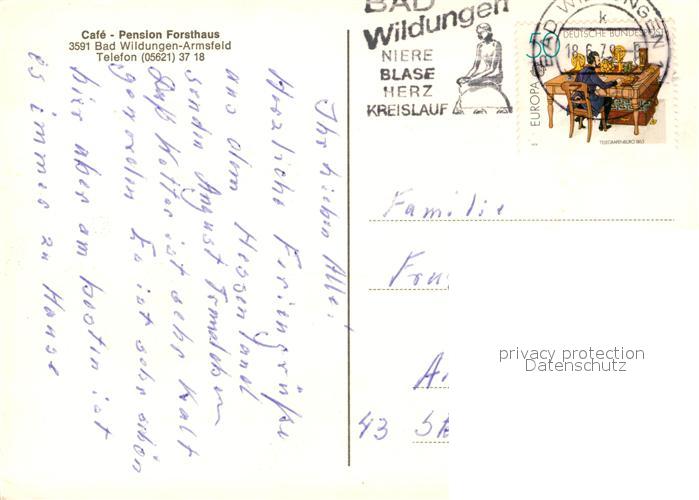 Café - Pension Forsthaus
3591 Bad Wildungen-Armsfeld
Telefon (05621) 37 18
BAD
Wildungen
NIERE
BLASE
HERZ
KREISLAUF
BAD WILDUNGEN 1
18.6.79
k
50
DEUTSCHE BUNDESPOST
EUROPA
TELEGRAFENBÜRO 1863
Ihr lieben Alle!
Herzliche Feriengrüße
aus dem Hessenland
senden August
Das Wetter ist sehr kalt
geworden Es ist sehr schön
hier aber am besten ist
es immer zu Hause
Familie
43
privacy protection
Datenschutz